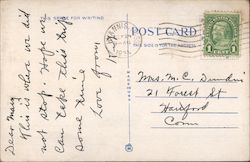 THIS SPACE FOR WRITING
POST CARD
THIS SIDE IS FOR THE ADDRESS
Dear Mary
This is where we did
not stop. Hope we
can take this trip
some time
Love from
Mrs. M. C.
21 Forest St
Hartford
Conn
1 CENT 1